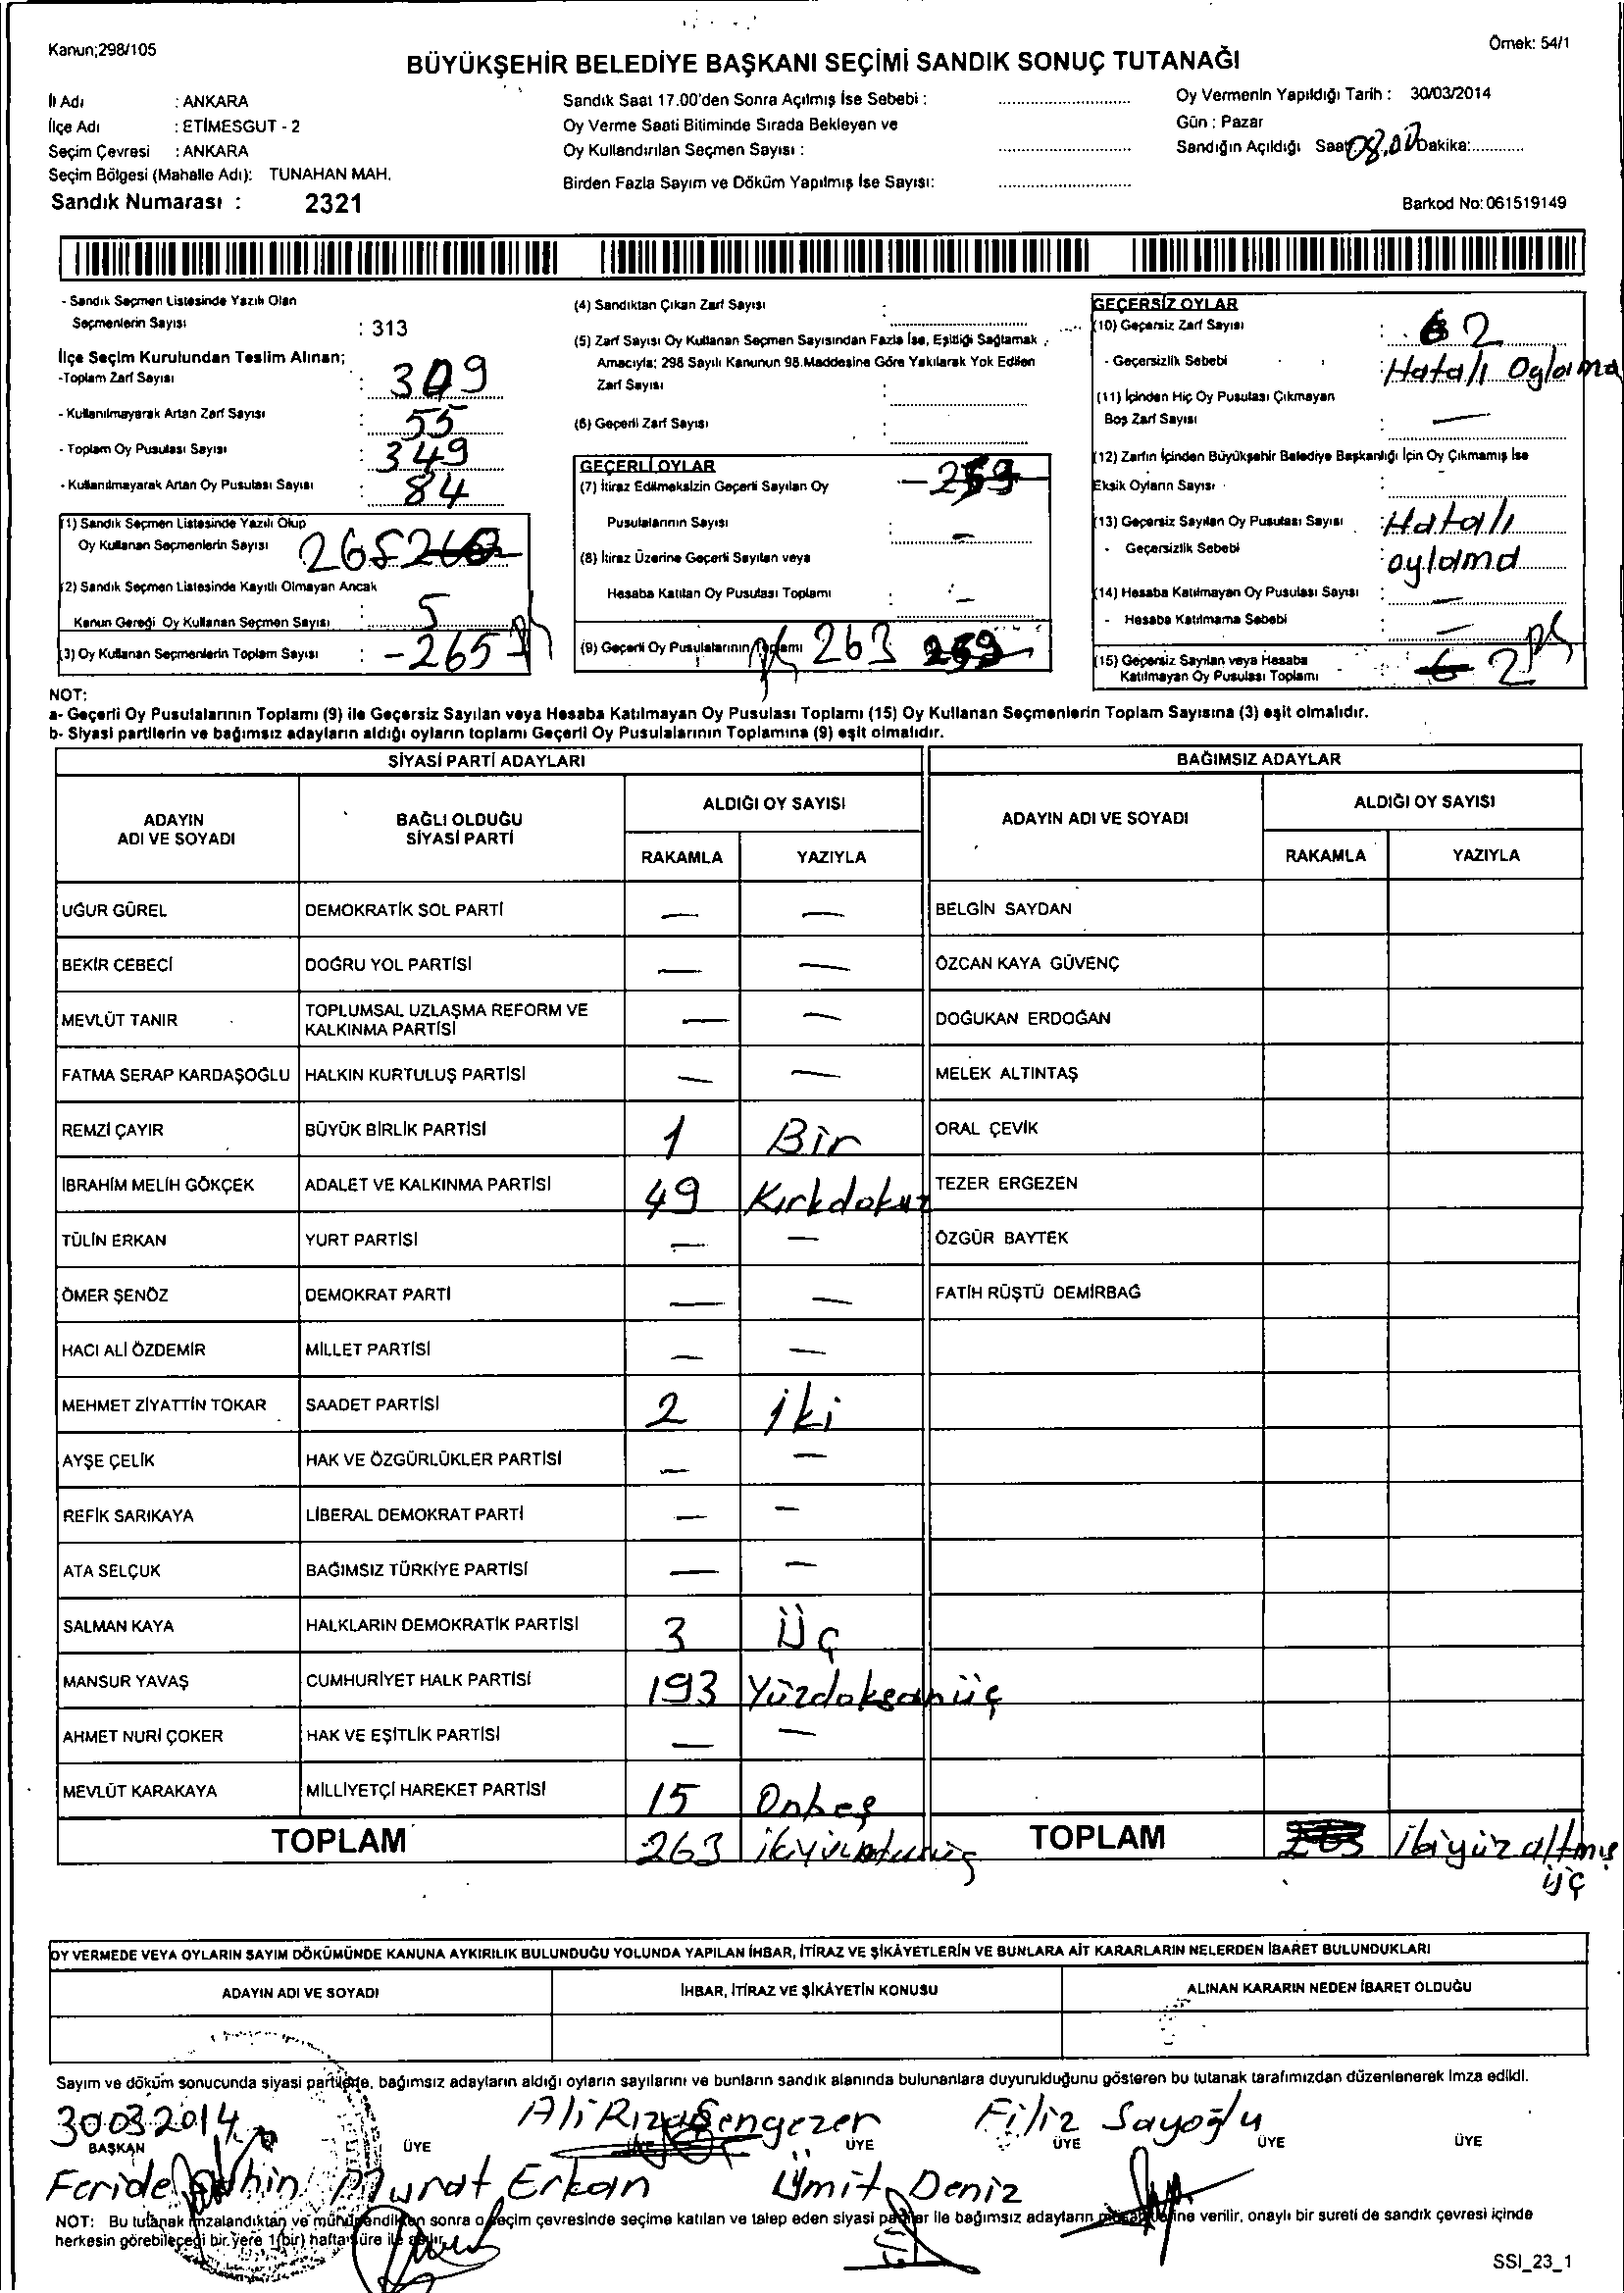 Kanun;298/105
Örnek: 54/1
BÜYÜKŞEHİR BELEDİYE BAŞKANI SEÇİMİ SANDIK SONUÇ TUTANAĞI
İl Adı : ANKARA
İlçe Adı : ETİMESGUT - 2
Seçim Çevresi : ANKARA
Seçim Bölgesi (Mahalle Adı): TUNAHAN MAH.
Sandık Numarası : 2321
Sandık Saat 17.00'den Sonra Açılmış İse Sebebi :
Oy Verme Saati Bitiminde Sırada Bekleyen ve
Oy Kullandırılan Seçmen Sayısı :
Birden Fazla Sayım ve Döküm Yapılmış İse Sayısı:
Oy Vermenin Yapıldığı Tarih : 30/03/2014
Gün : Pazar
Sandığın Açıldığı Saat 08.00 Dakika:
Barkod No: 061519149
- Sandık Seçmen Listesinde Yazılı Olan
Seçmenlerin Sayısı : 313
İlçe Seçim Kurulundan Teslim Alınan;
-Toplam Zarf Sayısı : 309
- Kullanılmayarak Artan Zarf Sayısı : 55
- Toplam Oy Pusulası Sayısı : 349
- Kullanılmayarak Artan Oy Pusulası Sayısı : 84
(1) Sandık Seçmen Listesinde Yazılı Olup
Oy Kullanan Seçmenlerin Sayısı 265 260
(2) Sandık Seçmen Listesinde Kayıtlı Olmayan Ancak
Kanun Gereği Oy Kullanan Seçmen Sayısı : 5
(3) Oy Kullanan Seçmenlerin Toplam Sayısı : -265
(4) Sandıktan Çıkan Zarf Sayısı :
(5) Zarf Sayısı Oy Kullanan Seçmen Sayısından Fazla İse, Eşitliği Sağlamak
Amacıyla; 298 Sayılı Kanunun 98.Maddesine Göre Yakılarak Yok Edilen
Zarf Sayısı :
(6) Geçerli Zarf Sayısı :
GEÇERLİ OYLAR
(7) İtiraz Edilmeksizin Geçerli Sayılan Oy -259
Pusulalarının Sayısı : -
(8) İtiraz Üzerine Geçerli Sayılan veya
Hesaba Katılan Oy Pusulası Toplamı : -
(9) Geçerli Oy Pusulalarının Toplamı 263 259
GEÇERSİZ OYLAR
(10) Geçersiz Zarf Sayısı : 6 2
- Geçersizlik Sebebi : Hatalı Oglama
(11) İçinden Hiç Oy Pusulası Çıkmayan
Boş Zarf Sayısı : —
(12) Zarfın İçinden Büyükşehir Belediye Başkanlığı İçin Oy Çıkmamış İse
Eksik Oyların Sayısı :
(13) Geçersiz Sayılan Oy Pusulası Sayısı : Hatalı
- Geçersizlik Sebebi : oylama
(14) Hesaba Katılmayan Oy Pusulası Sayısı : —
- Hesaba Katılmama Sebebi : —
(15) Geçersiz Sayılan veya Hesaba
Katılmayan Oy Pusulası Toplamı : 6 2
NOT:
a- Geçerli Oy Pusulalarının Toplamı (9) ile Geçersiz Sayılan veya Hesaba Katılmayan Oy Pusulası Toplamı (15) Oy Kullanan Seçmenlerin Toplam Sayısına (3) eşit olmalıdır.
b- Siyasi partilerin ve bağımsız adayların aldığı oyların toplamı Geçerli Oy Pusulalarının Toplamına (9) eşit olmalıdır.
SİYASİ PARTİ ADAYLARI BAĞIMSIZ ADAYLAR
ADAYIN ADI VE SOYADI BAĞLI OLDUĞU SİYASİ PARTİ ALDIĞI OY SAYISI ADAYIN ADI VE SOYADI ALDIĞI OY SAYISI
RAKAMLA YAZIYLA RAKAMLA YAZIYLA
UĞUR GÜREL DEMOKRATİK SOL PARTİ — — BELGİN SAYDAN
BEKİR CEBECİ DOĞRU YOL PARTİSİ — — ÖZCAN KAYA GÜVENÇ
MEVLÜT TANIR TOPLUMSAL UZLAŞMA REFORM VE KALKINMA PARTİSİ — — DOĞUKAN ERDOĞAN
FATMA SERAP KARDAŞOĞLU HALKIN KURTULUŞ PARTİSİ — — MELEK ALTINTAŞ
REMZİ ÇAYIR BÜYÜK BİRLİK PARTİSİ 1 Bir ORAL ÇEVİK
İBRAHİM MELİH GÖKÇEK ADALET VE KALKINMA PARTİSİ 49 Kırkdokuz TEZER ERGEZEN
TÜLİN ERKAN YURT PARTİSİ — — ÖZGÜR BAYTEK
ÖMER ŞENÖZ DEMOKRAT PARTİ — — FATİH RÜŞTÜ DEMİRBAĞ
HACI ALİ ÖZDEMİR MİLLET PARTİSİ — —
MEHMET ZİYATTİN TOKAR SAADET PARTİSİ 2 iki
AYŞE ÇELİK HAK VE ÖZGÜRLÜKLER PARTİSİ — —
REFİK SARIKAYA LİBERAL DEMOKRAT PARTİ — —
ATA SELÇUK BAĞIMSIZ TÜRKİYE PARTİSİ — —
SALMAN KAYA HALKLARIN DEMOKRATİK PARTİSİ 3 Üç
MANSUR YAVAŞ CUMHURİYET HALK PARTİSİ 193 Yüzdoksanüç
AHMET NURİ ÇOKER HAK VE EŞİTLİK PARTİSİ — —
MEVLÜT KARAKAYA MİLLİYETÇİ HAREKET PARTİSİ 15 Onbeş
TOPLAM 263 TOPLAM 263 ikiyüz altmış
üç
OY VERMEDE VEYA OYLARIN SAYIM DÖKÜMÜNDE KANUNA AYKIRILIK BULUNDUĞU YOLUNDA YAPILAN İHBAR, İTİRAZ VE ŞİKÂYETLERİN VE BUNLARA AİT KARARLARIN NELERDEN İBARET BULUNDUKLARI
ADAYIN ADI VE SOYADI İHBAR, İTİRAZ VE ŞİKÂYETİN KONUSU ALINAN KARARIN NEDEN İBARET OLDUĞU
Sayım ve döküm sonucunda siyasi partilerle, bağımsız adayların aldığı oyların sayılarını ve bunların sandık alanında bulunanlara duyurulduğunu gösteren bu tutanak tarafımızdan düzenlenerek imza edildi.
30032014 Ali Rıza Şengezer Filiz Sayoğlu
BAŞKAN ÜYE ÜYE ÜYE ÜYE ÜYE
Feride Şahin Murat Erkan Ümit Deniz
NOT: Bu tutanak imzalandıktan ve mühürlendikten sonra o seçim çevresinde seçime katılan ve talep eden siyasi partiler ile bağımsız adayların müşahitlerine verilir, onaylı bir sureti de sandık çevresi içinde
herkesin görebileceği bir yere 1(bir) hafta süre ile asılır.
SSI_23_1